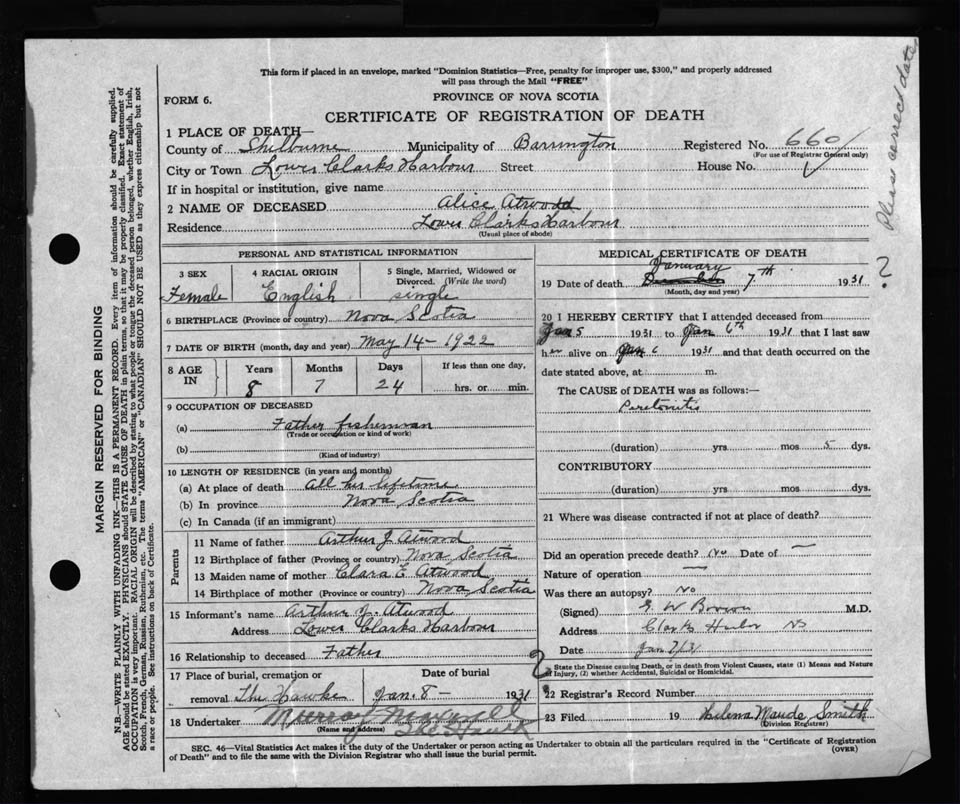 This form if placed in an envelope, marked "Dominion Statistics—Free, penalty for improper use, $300," and properly addressed
will pass through the Mail "FREE"
FORM 6.
PROVINCE OF NOVA SCOTIA
CERTIFICATE OF REGISTRATION OF DEATH
1 PLACE OF DEATH—
County of Shelburne Municipality of Barrington Registered No. 660
(For use of Registrar General only)
City or Town Lower Clarks Harbour Street House No.
If in hospital or institution, give name
2 NAME OF DECEASED Alice Atwood
Residence Lower Clarks Harbour
(Usual place of abode)
Please correct date
?
MARGIN RESERVED FOR BINDING
N.B.—WRITE PLAINLY WITH UNFADING INK—THIS IS A PERMANENT RECORD. Every item of information should be carefully supplied.
AGE should be stated EXACTLY. PHYSICIANS should STATE CAUSE OF DEATH in plain terms, so that it may be properly classified. Exact statement of
OCCUPATION is very important. RACIAL ORIGIN will be described by stating to what people or tongue the deceased person belonged, whether English, Irish,
Scotch, French, German, Russian, Ruthenian, etc. The terms "AMERICAN" or "CANADIAN" SHOULD NOT BE USED as they express citizenship but not
a race or people. See instructions on back of Certificate.
PERSONAL AND STATISTICAL INFORMATION
3 SEX
Female
4 RACIAL ORIGIN
English
5 Single, Married, Widowed or
Divorced. (Write the word)
single
6 BIRTHPLACE (Province or country) Nova Scotia
7 DATE OF BIRTH (month, day and year) May 14 - 1922
8 AGE IN
Years Months Days If less than one day,
8 7 24 hrs. or min.
9 OCCUPATION OF DECEASED
(a) Father fisherman
(Trade or occupation or kind of work)
(b)
(Kind of industry)
10 LENGTH OF RESIDENCE (in years and months)
(a) At place of death All his lifetime
(b) In province Nova Scotia
(c) In Canada (if an immigrant)
Parents
11 Name of father Arthur J. Atwood
12 Birthplace of father (Province or country) Nova Scotia
13 Maiden name of mother Clara E Atwood
14 Birthplace of mother (Province or country) Nova Scotia
15 Informant's name Arthur J. Atwood
Address Lower Clarks Harbour
16 Relationship to deceased Father
17 Place of burial, cremation or Date of burial
removal The Hawke Jan. 8 - 1931
18 Undertaker Murray
(Name and address) The Hawk
MEDICAL CERTIFICATE OF DEATH
January
19 Date of death December 7th 1931
(Month, day and year)
20 I HEREBY CERTIFY that I attended deceased from
Jan 5 1931 to Jan 6th 1931 that I last saw
her alive on Jan 6 1931 and that death occurred on the
date stated above, at m.
The CAUSE of DEATH was as follows:—
Peretonitis
(duration) yrs mos 5 dys.
CONTRIBUTORY
(duration) yrs. mos. dys.
21 Where was disease contracted if not at place of death?
Did an operation precede death? No Date of —
Nature of operation —
Was there an autopsy? No
(Signed) G W Brown M.D.
Address Clarks Harbor NS
Date Jan 7/31
? State the Disease causing Death, or in death from Violent Causes, state (1) Means and Nature
of Injury, (2) whether Accidental, Suicidal or Homicidal.
22 Registrar's Record Number
23 Filed 19 Helena Maude Smith
(Division Registrar)
SEC. 46—Vital Statistics Act makes it the duty of the Undertaker or person acting as Undertaker to obtain all the particulars required in the "Certificate of Registration
of Death" and to file the same with the Division Registrar who shall issue the burial permit. (OVER)